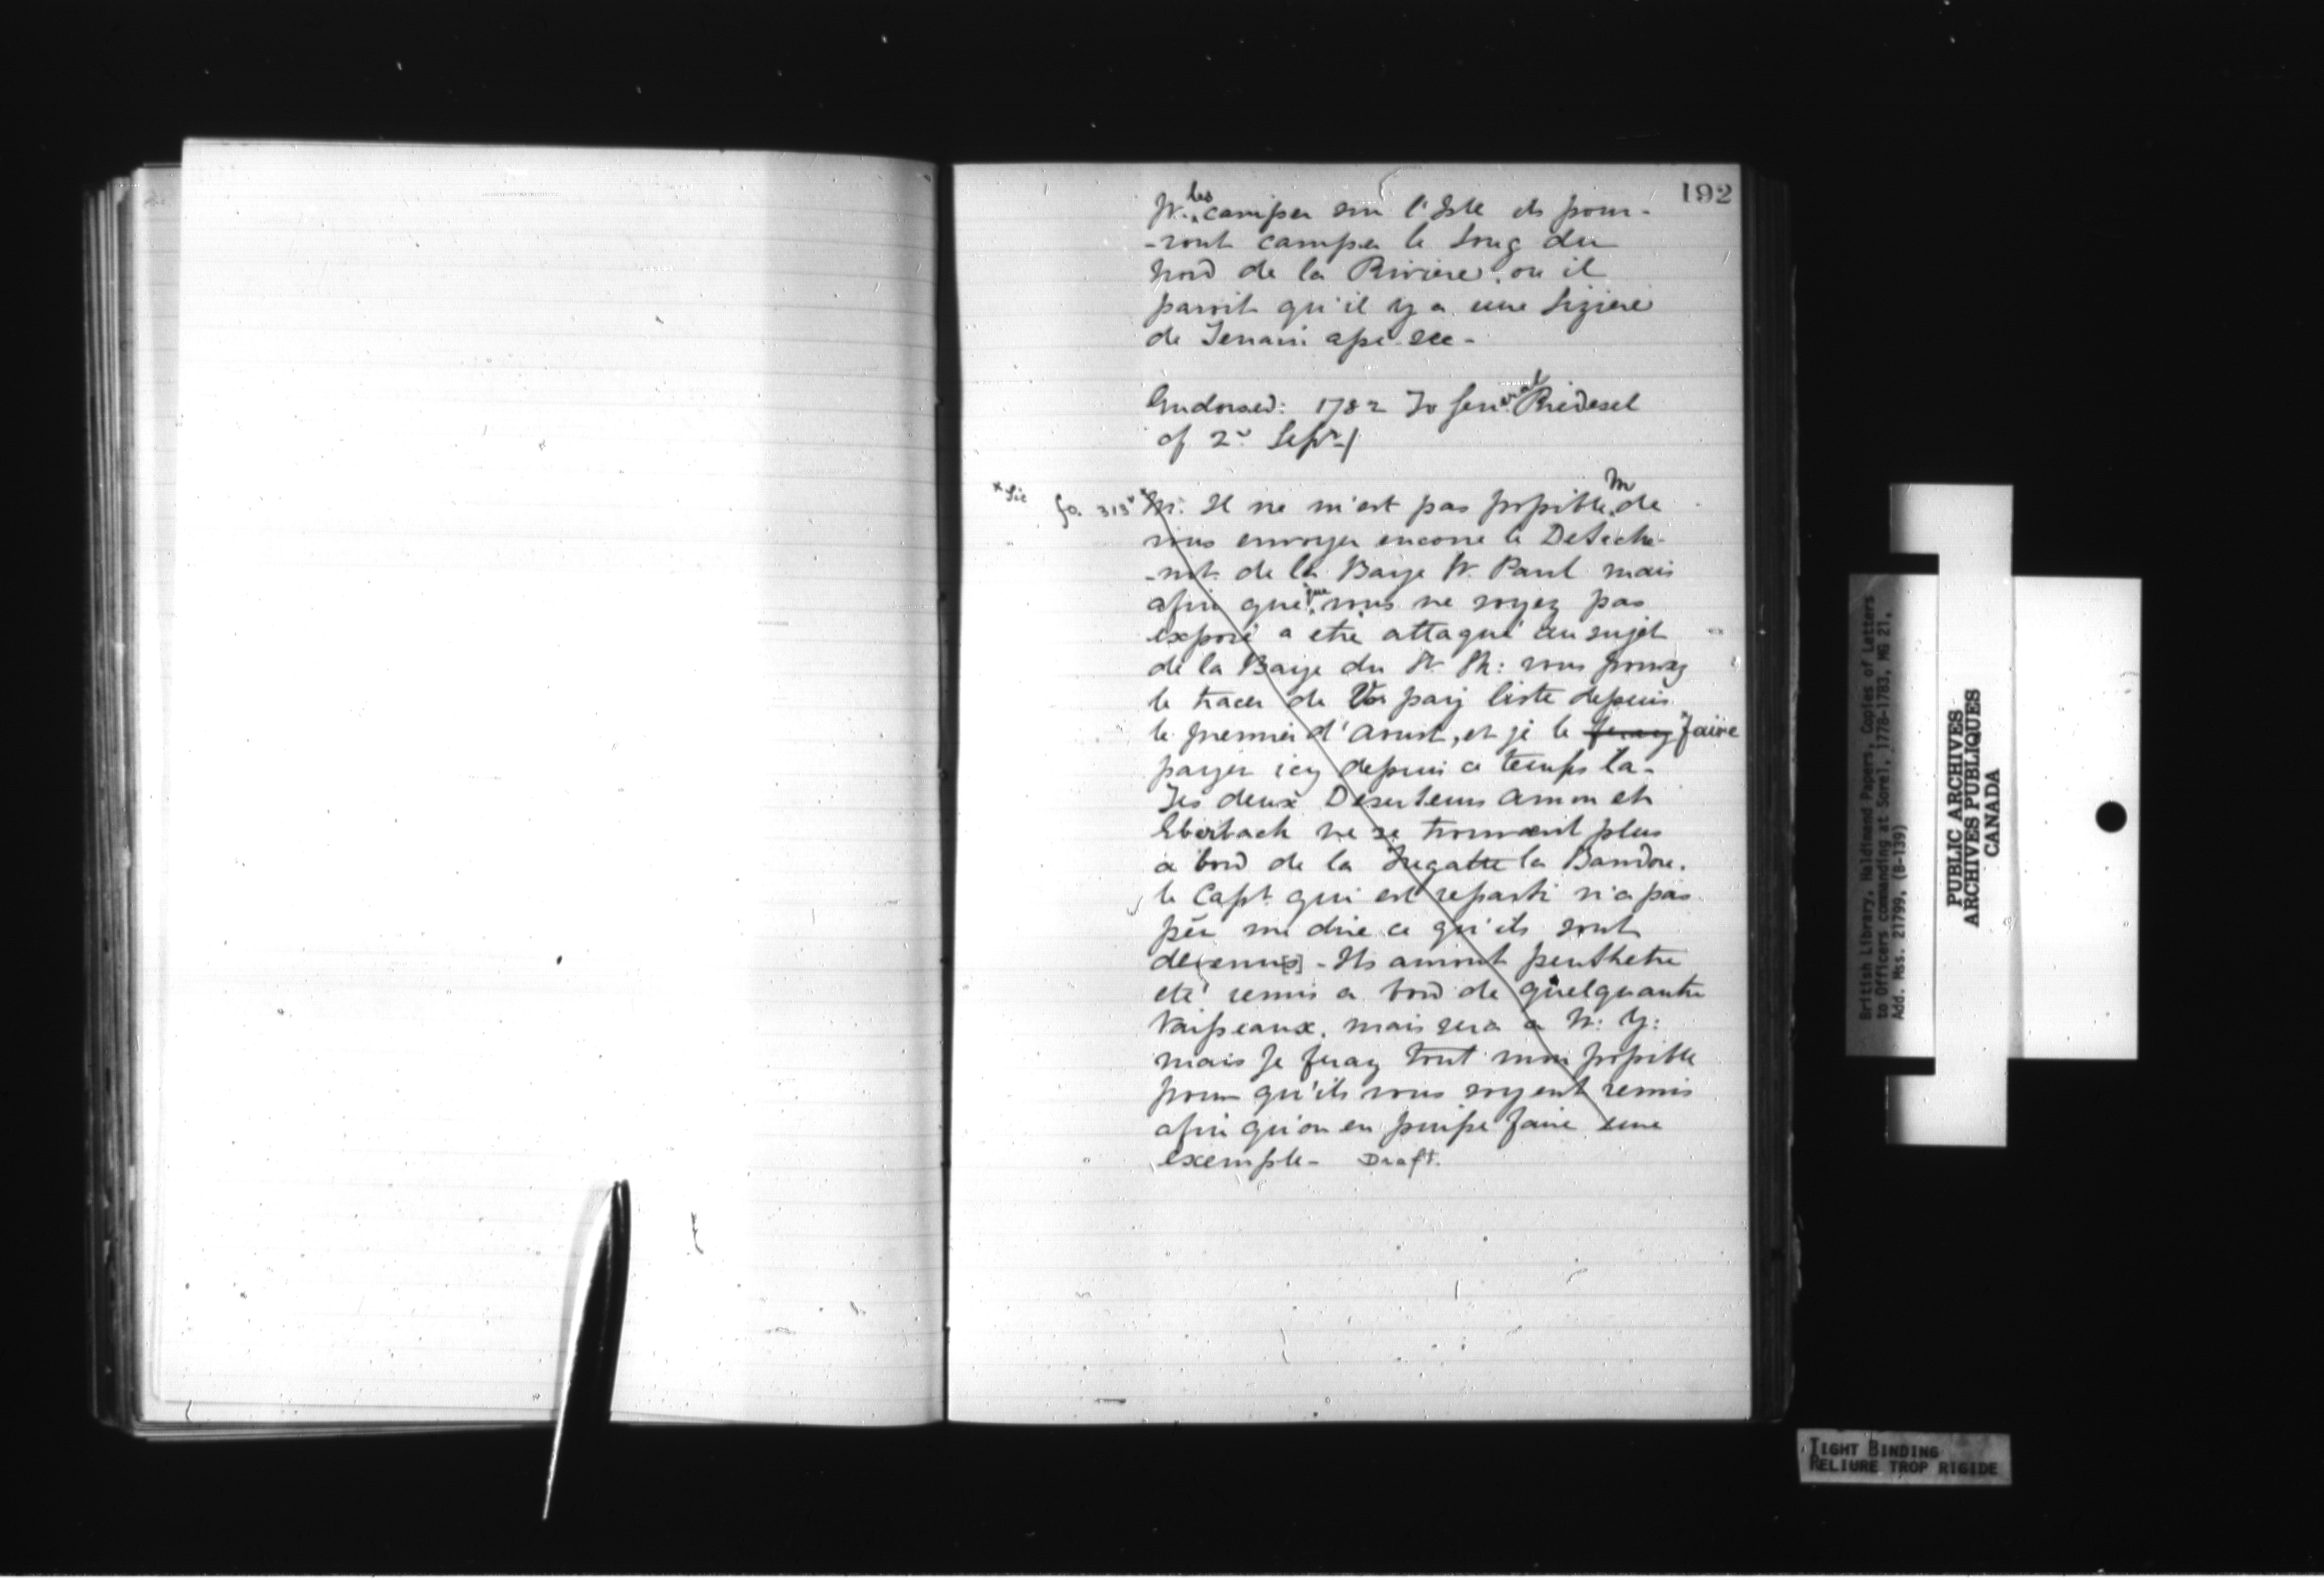 192
les
pr. camper sur l'Isle ils pour-
-ront camper le long du
Nord de la Riviere, ou il
paroit qu'il y a une Liziere
de Terrain assé sec -
Endorsed: 1782 To General Riedesel
of 2d Septr /
x Sic
fo. 313v
x Mr: Il ne m'est pas possible M de
vous envoyer encore le Detache-
-mt de la Baye St. Paul mais
afin que que vous ne soyez pas
exposé a etre attaqué au sujet
de la Baye du St.: vous pouvez
le tracer de Vos pay liste depuis
le premier d'Aoust, et je le feray x faire
payer icy depuis ce temps la -
Les deux Deserteurs Amon et
Eberbach ne se trouvoent plus
a bord de la Fregatte la Pandore.
le Capt. qui est reparti n'a pas
pû me dire ce qu'ils sont
devenu[s] - Ils auront peuthetre
eté remis a bord de quelquautre
Vaisseaux, mais sera a N: Y:
mais Je feray tout mon possible
pour qu'ils vous soyent remis
afin qu'on en puisse faire une
exemple - Draft.
British Library, Haldimand Papers, Copies of Letters
to Officers commanding at Sorel, 1778-1783, MG 21,
Add. Mss. 21799, (B-139)
PUBLIC ARCHIVES
ARCHIVES PUBLIQUES
CANADA
TIGHT BINDING
RELIURE TROP RIGIDE